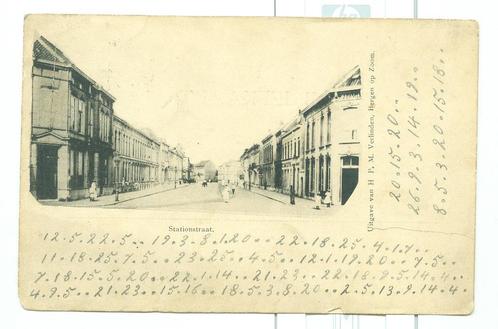 Uitgave van H P. M. Verlinden, Bergen op Zoom.
20.15.20..
26.9.3.14.19..
8.5.3.20.15.18..
Stationstraat.
12.5.22.5.. 19.3.8.1.20.. 22.18.25.4.1.7..
11.18.25.7.5.. 23.25.. 4.5.. 12.1.19.20.. 7.5..
7.18.15.5.20.. 22.1.14.. 21.23.. 22.18.9.5.14.4..
4.9.5.. 21.23.. 15.16.. 18.5.3.8.20.. 2.5.13.9.14.4..